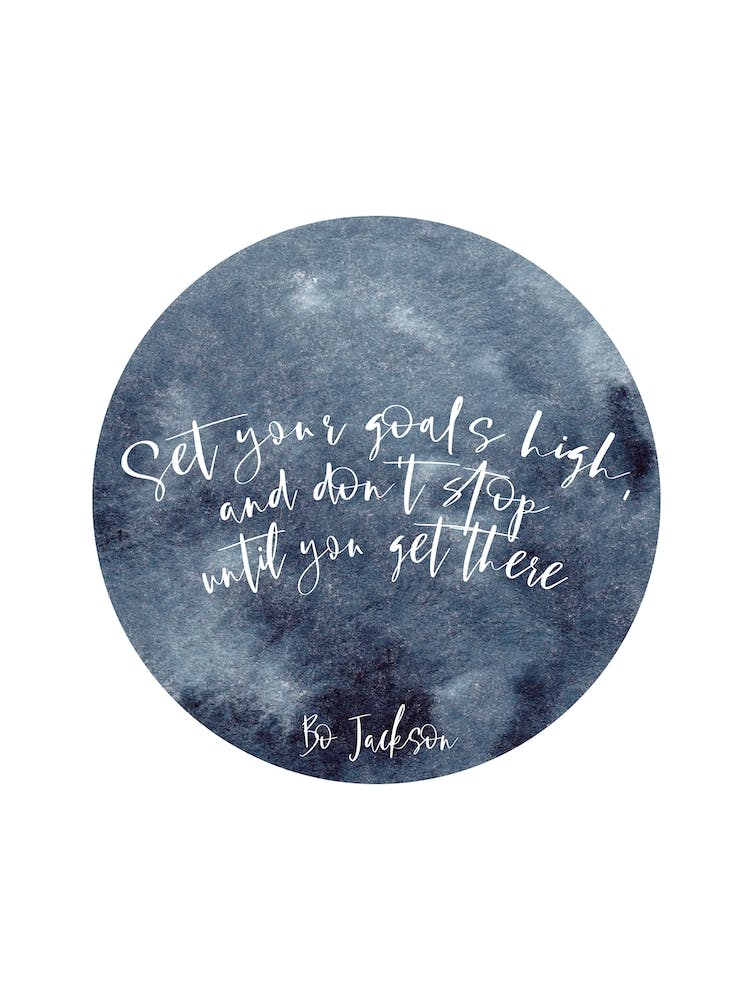 Set your goals high,
and don't stop
until you get there
Bo Jackson